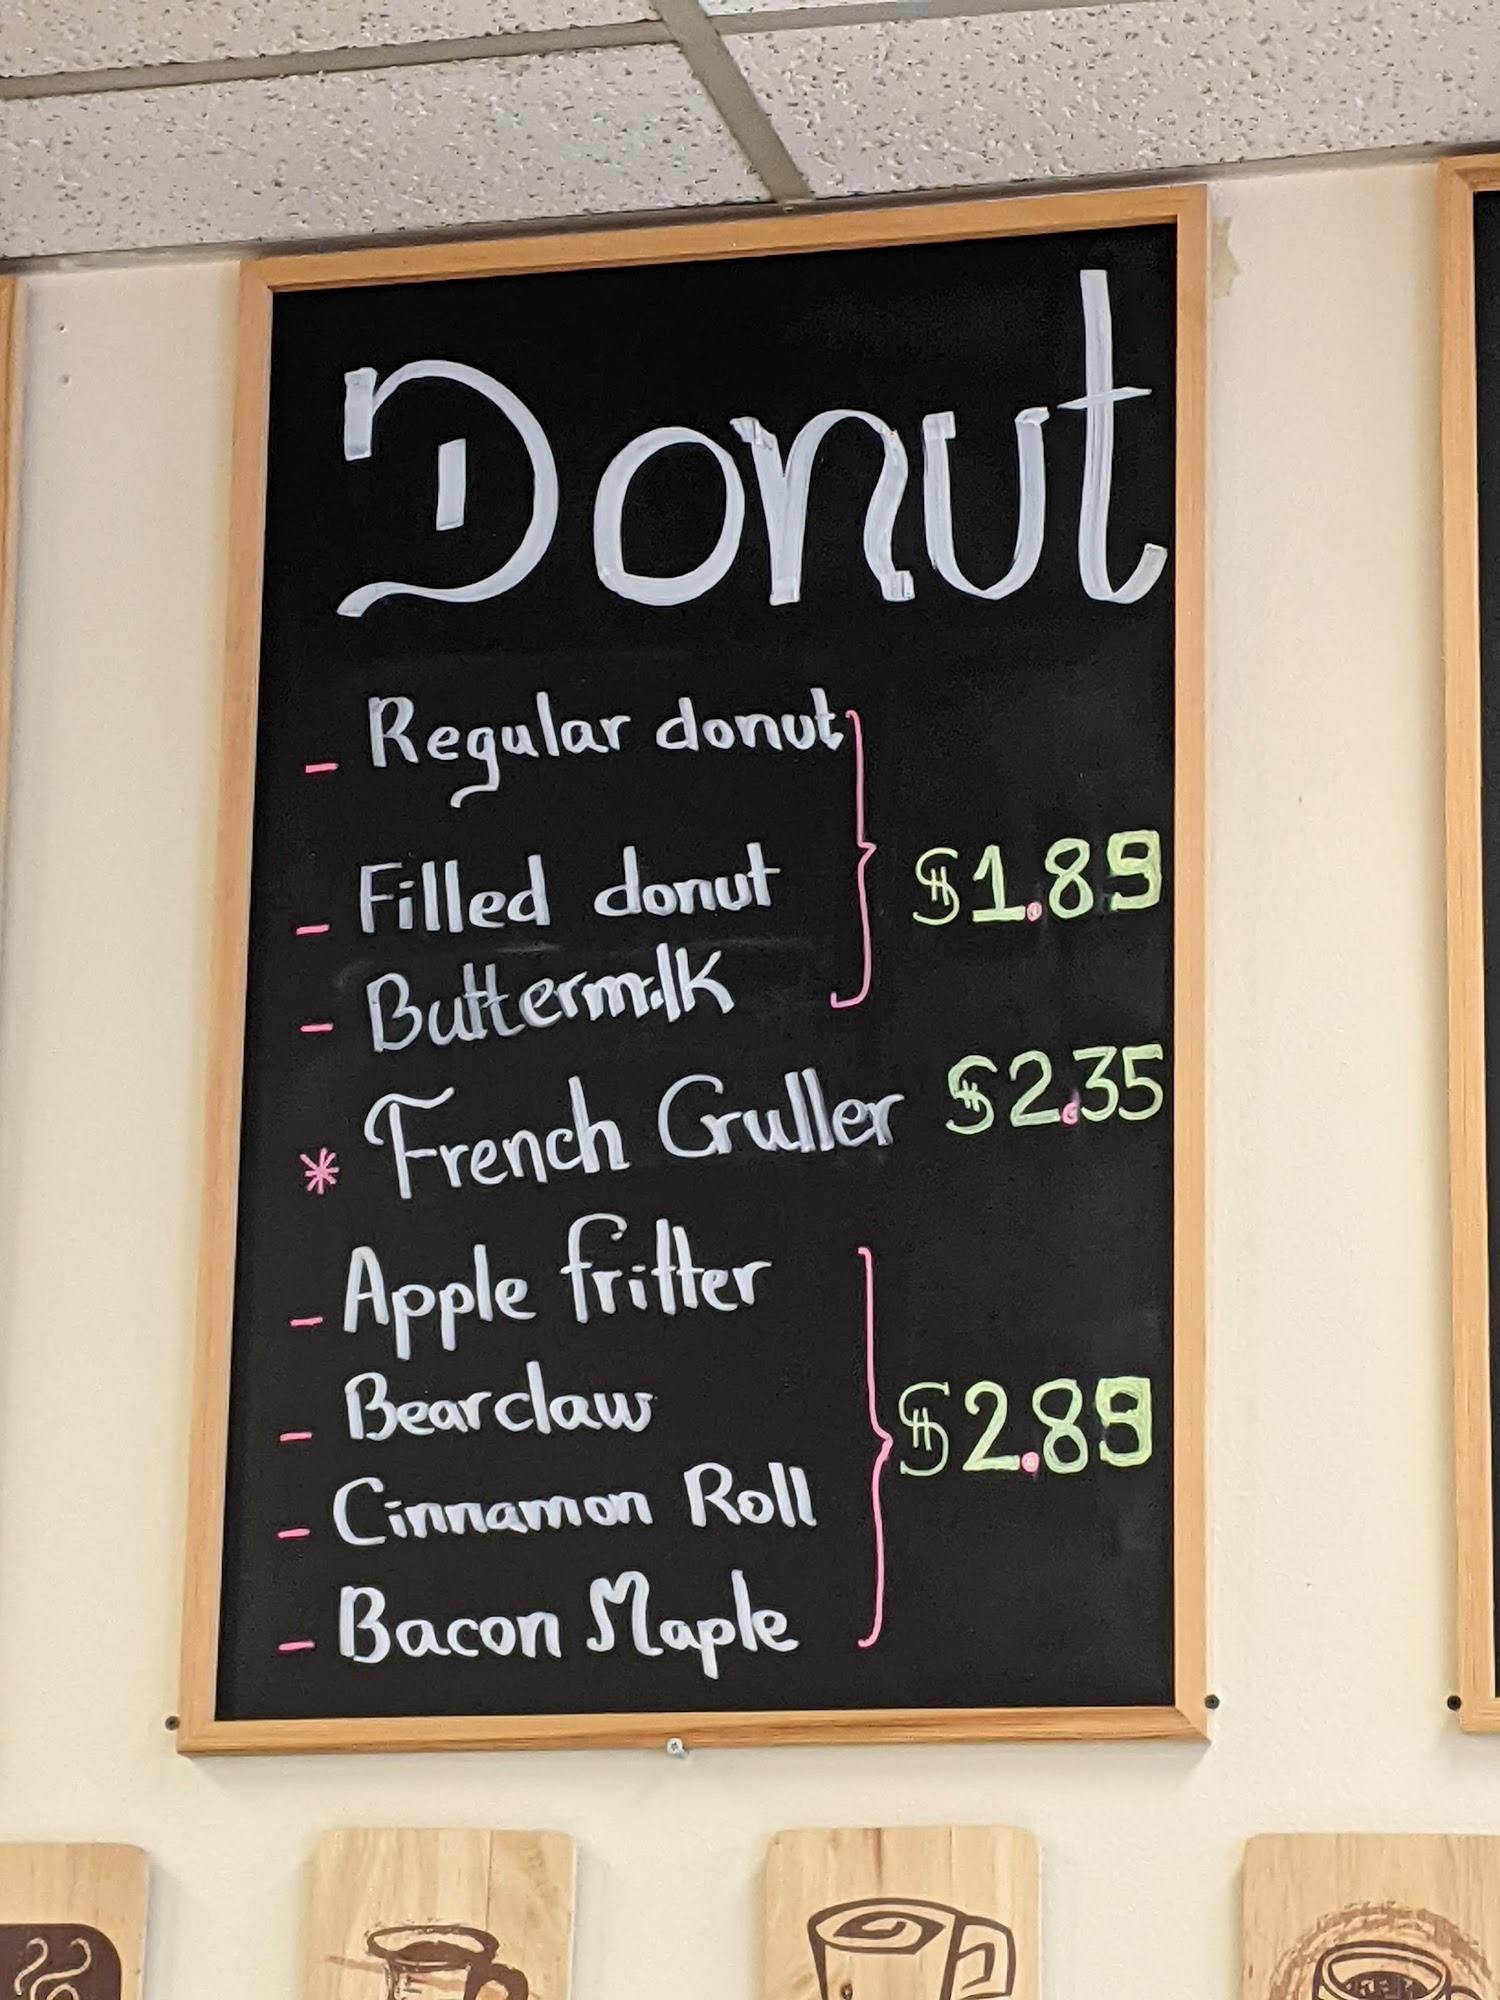 Donut
- Regular donut
- Filled donut
$1.89
- Buttermilk
* French Cruller $2.35
- Apple fritter
- Bearclaw
$2.89
- Cinnamon Roll
- Bacon Maple